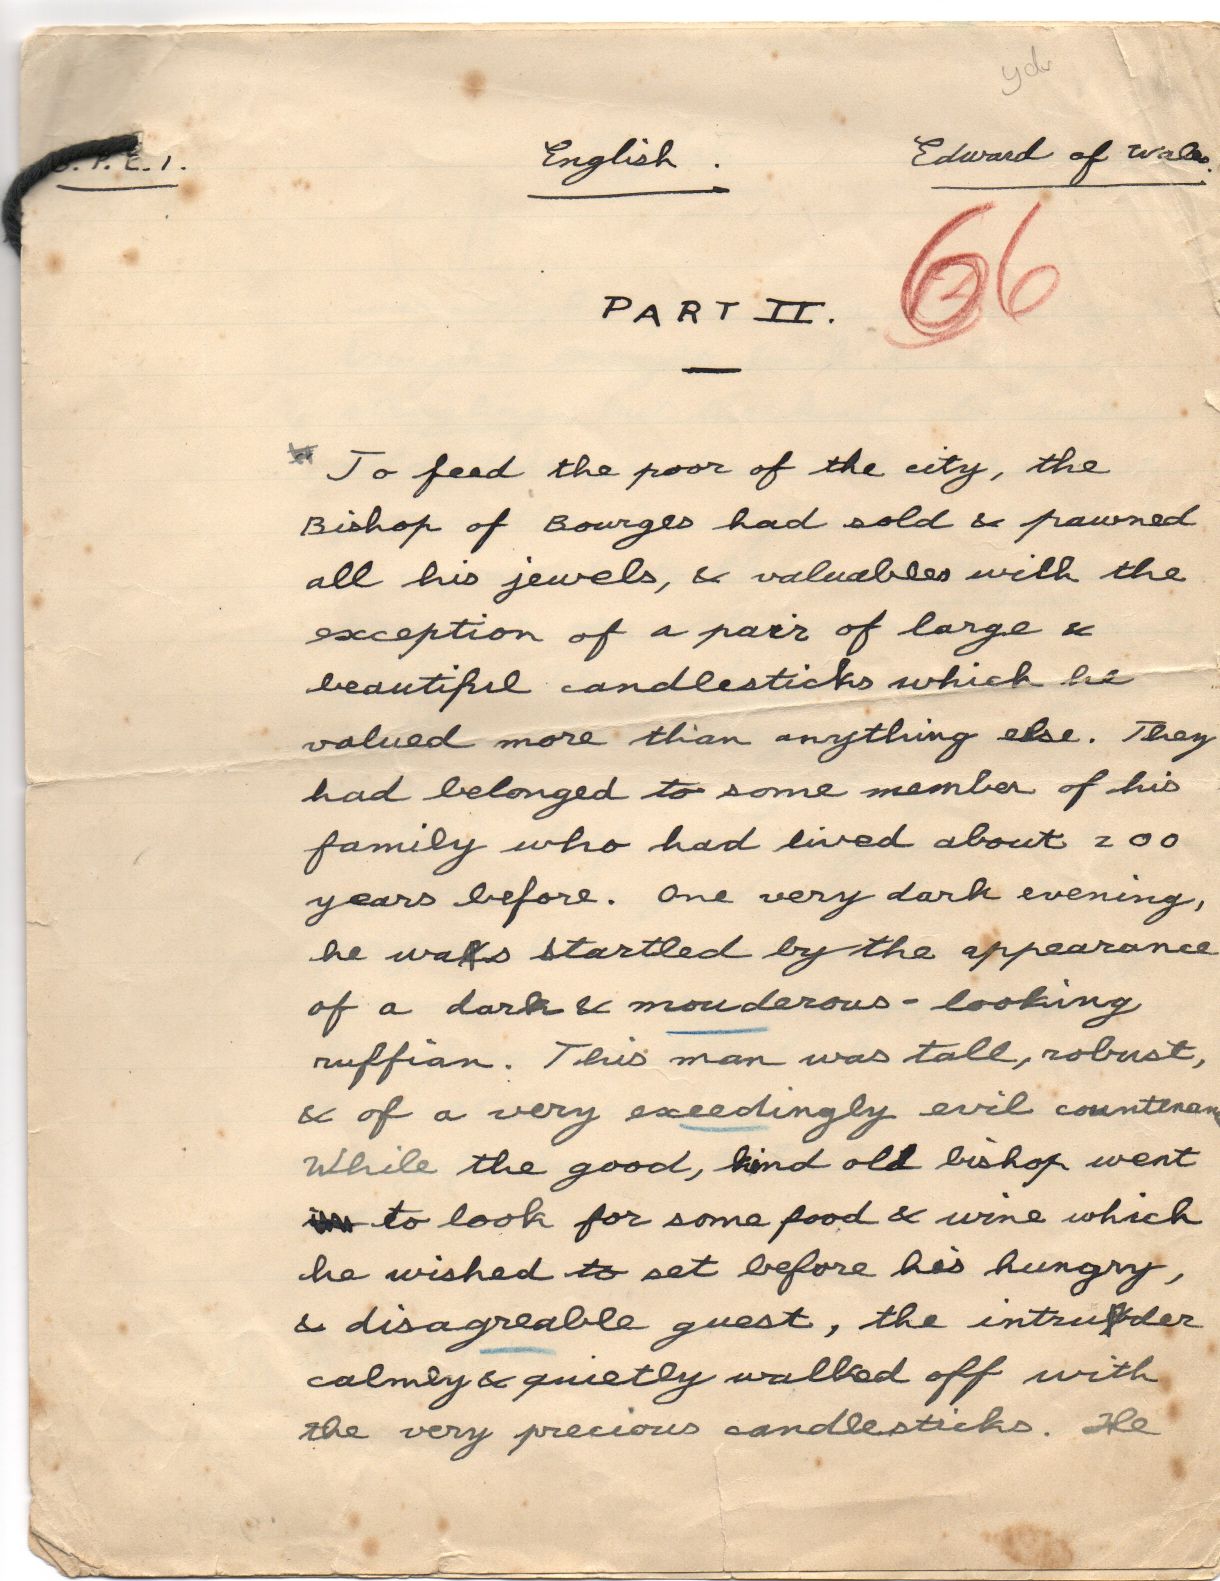 English .
Edward of Wales.
66
PART II.
To feed the poor of the city, the
Bishop of Bourges had sold & pawned
all his jewels, & valuables with the
exception of a pair of large &
beautiful candlesticks which he
valued more than anything else. They
had belonged to some member of his
family who had lived about 200
years before. One very dark evening,
he was startled by the appearance
of a dark & mouderous-looking
ruffian. This man was tall, robust,
& of a very exceedingly evil countenanc
While the good, kind old bishop went
to look for some food & wine which
he wished to set before his hungry,
& disagreable guest, the intruder
calmly & quietly walked off with
the very precious candlesticks. He